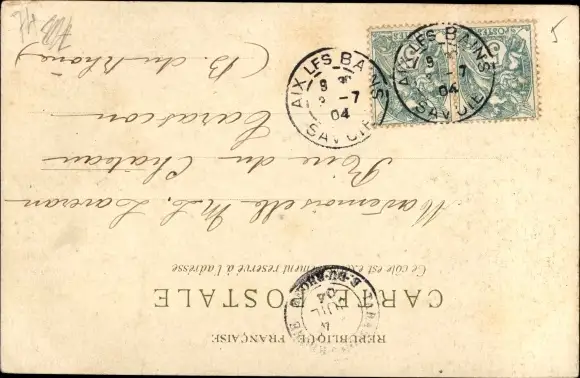 RÉPUBLIQUE FRANÇAISE
CARTE POSTALE
Ce côté est exclusivement réservé à l'adresse
Mademoiselle M. L. Laveran
Rue du Château
Tarascon
(B. du Rhône)
AIX-LES-BAINS
9
-7
04
SAVOIE
AIX-LES-BAINS
9
-7
04
SAVOIE
POSTES
5